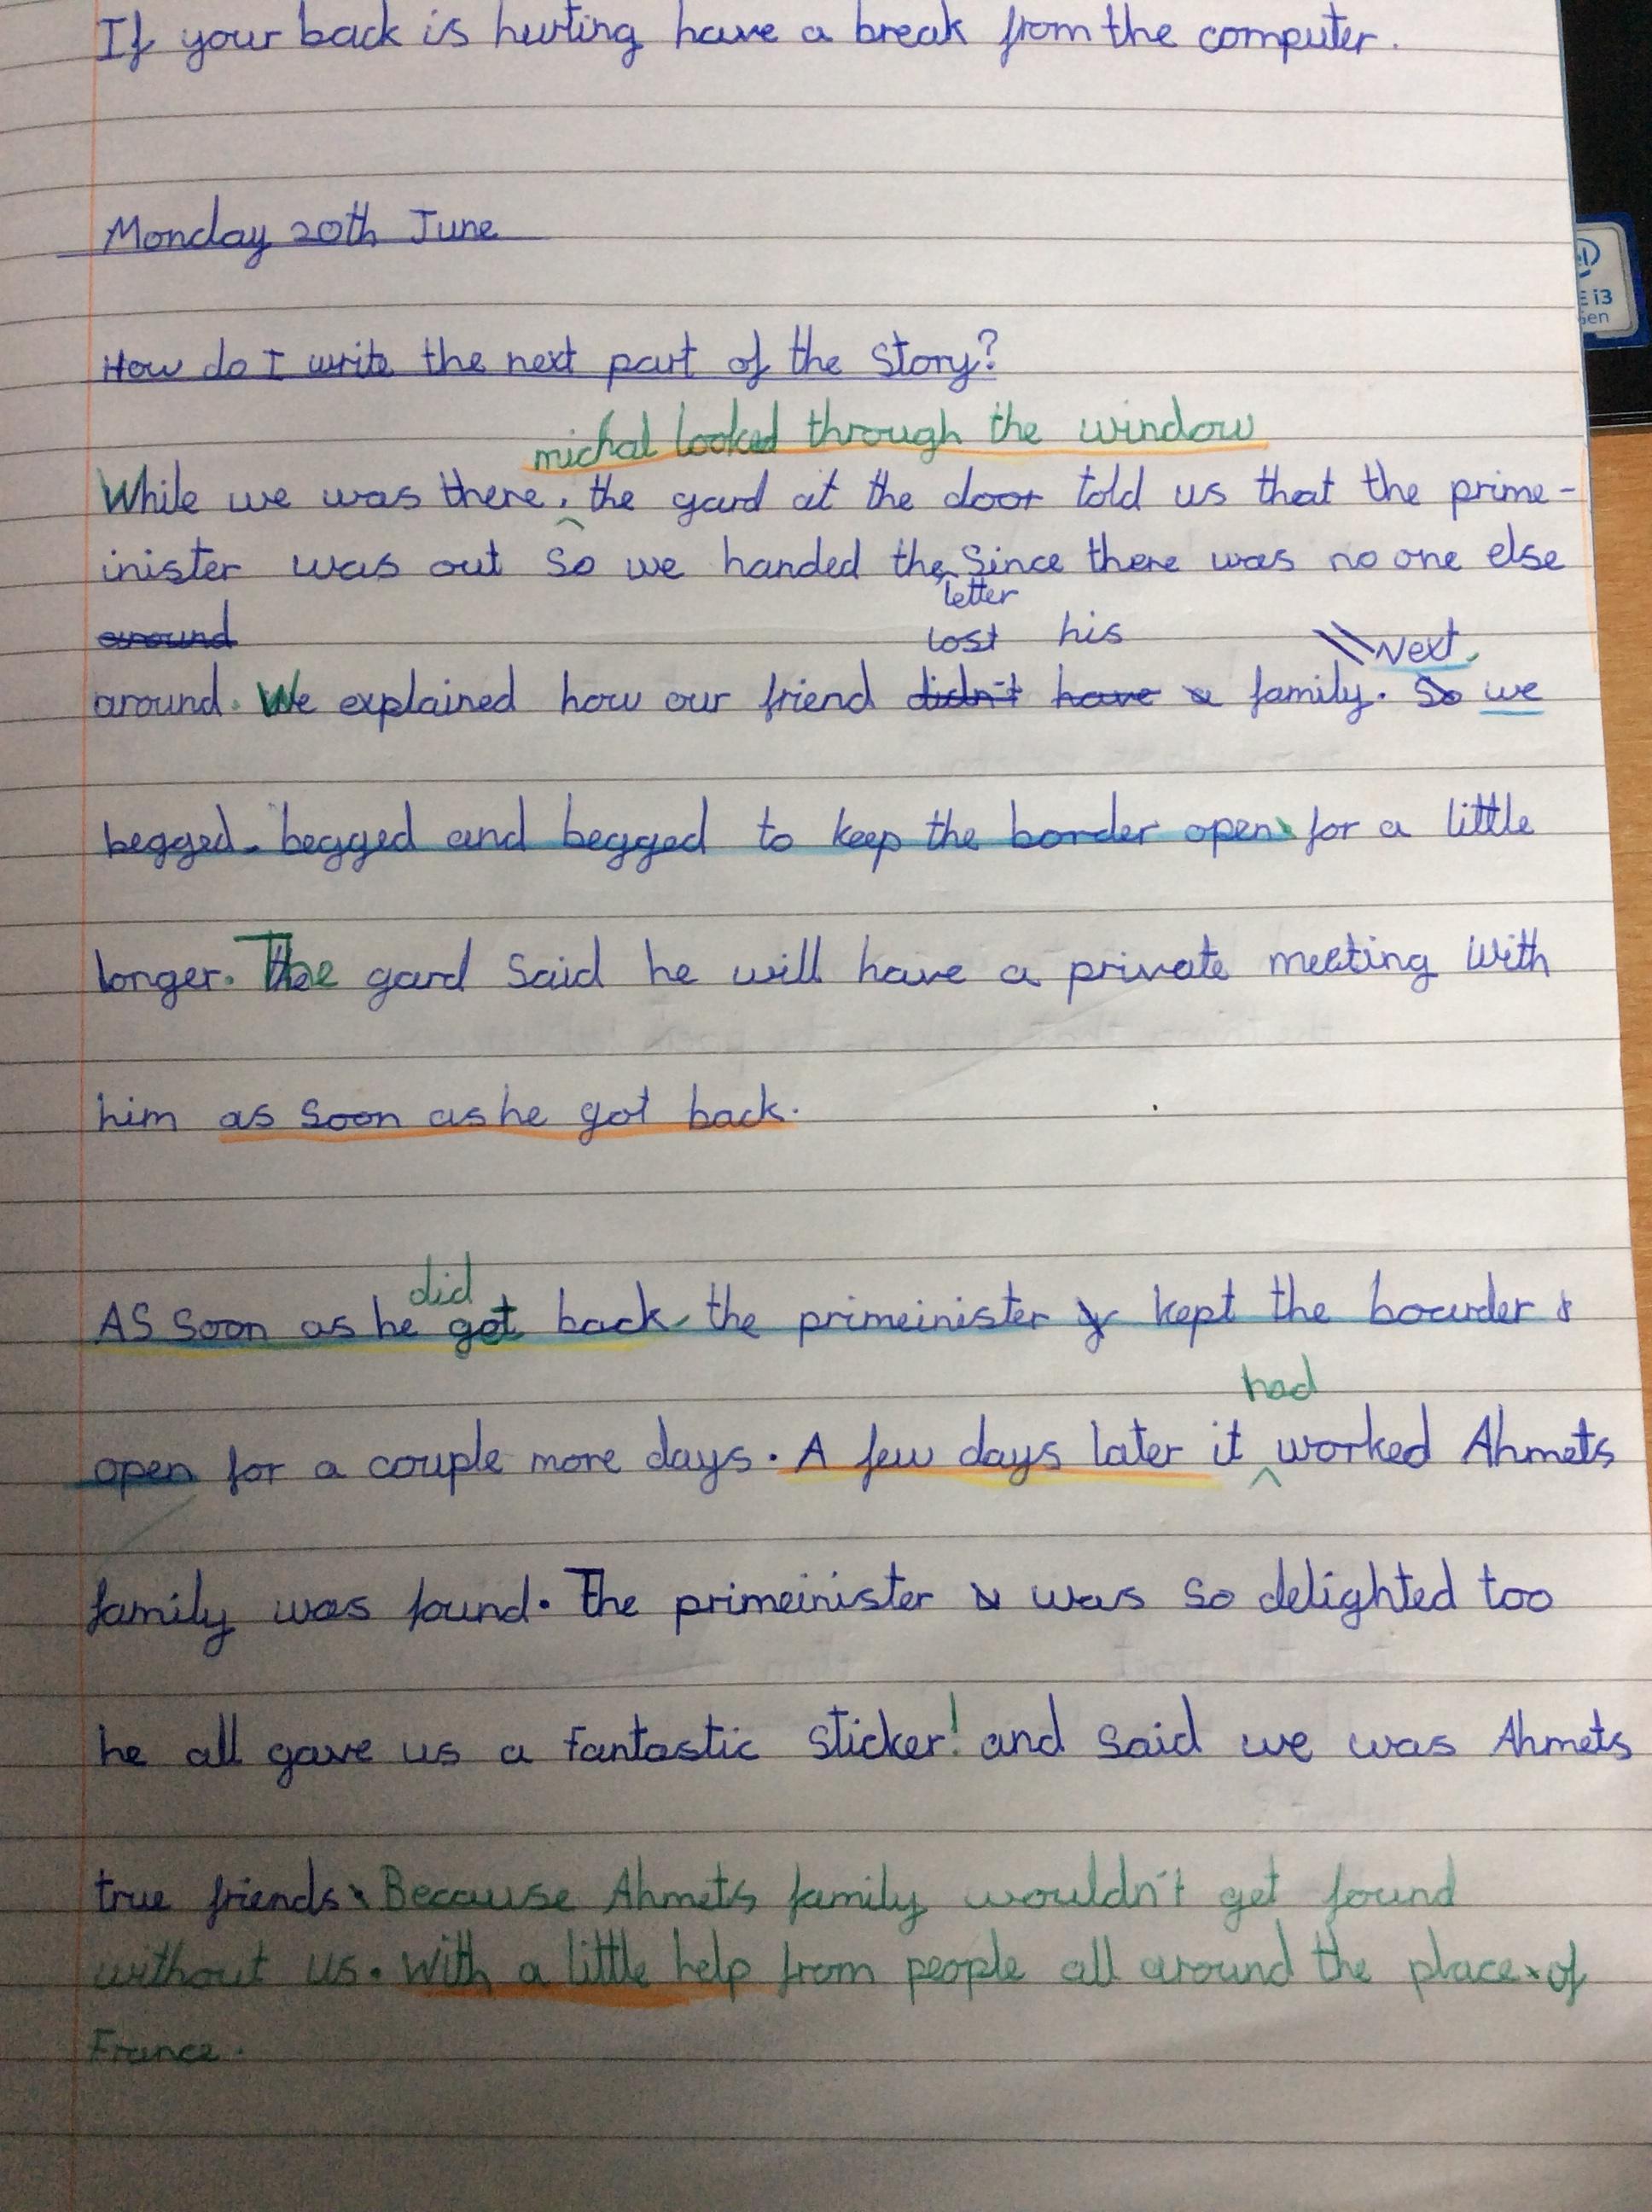 If your back is hurting have a break from the computer.
Monday 20th June
How do I write the next part of the Story?
michal looked through the window
While we was there, the gard at the door told us that the prime-
inister was out So we handed the Since there was no one else
letter
around
lost his
Next,
around. We explained how our friend didn't have a family. So we
begged, begged and begged to keep the border open for a little
longer. The gard Said he will have a private meeting with
him as Soon as he got back.
did
AS Soon as he got back, the primeinister kept the bourder
had
open for a couple more days. A few days later it worked Ahmets
family was found. The primeinister was so delighted too
he all gave us a fantastic sticker! and said we was Ahmets
true friends. Because Ahmets family wouldn't get found
without us. With a little help from people all around the place of
France.
E i3
Gen